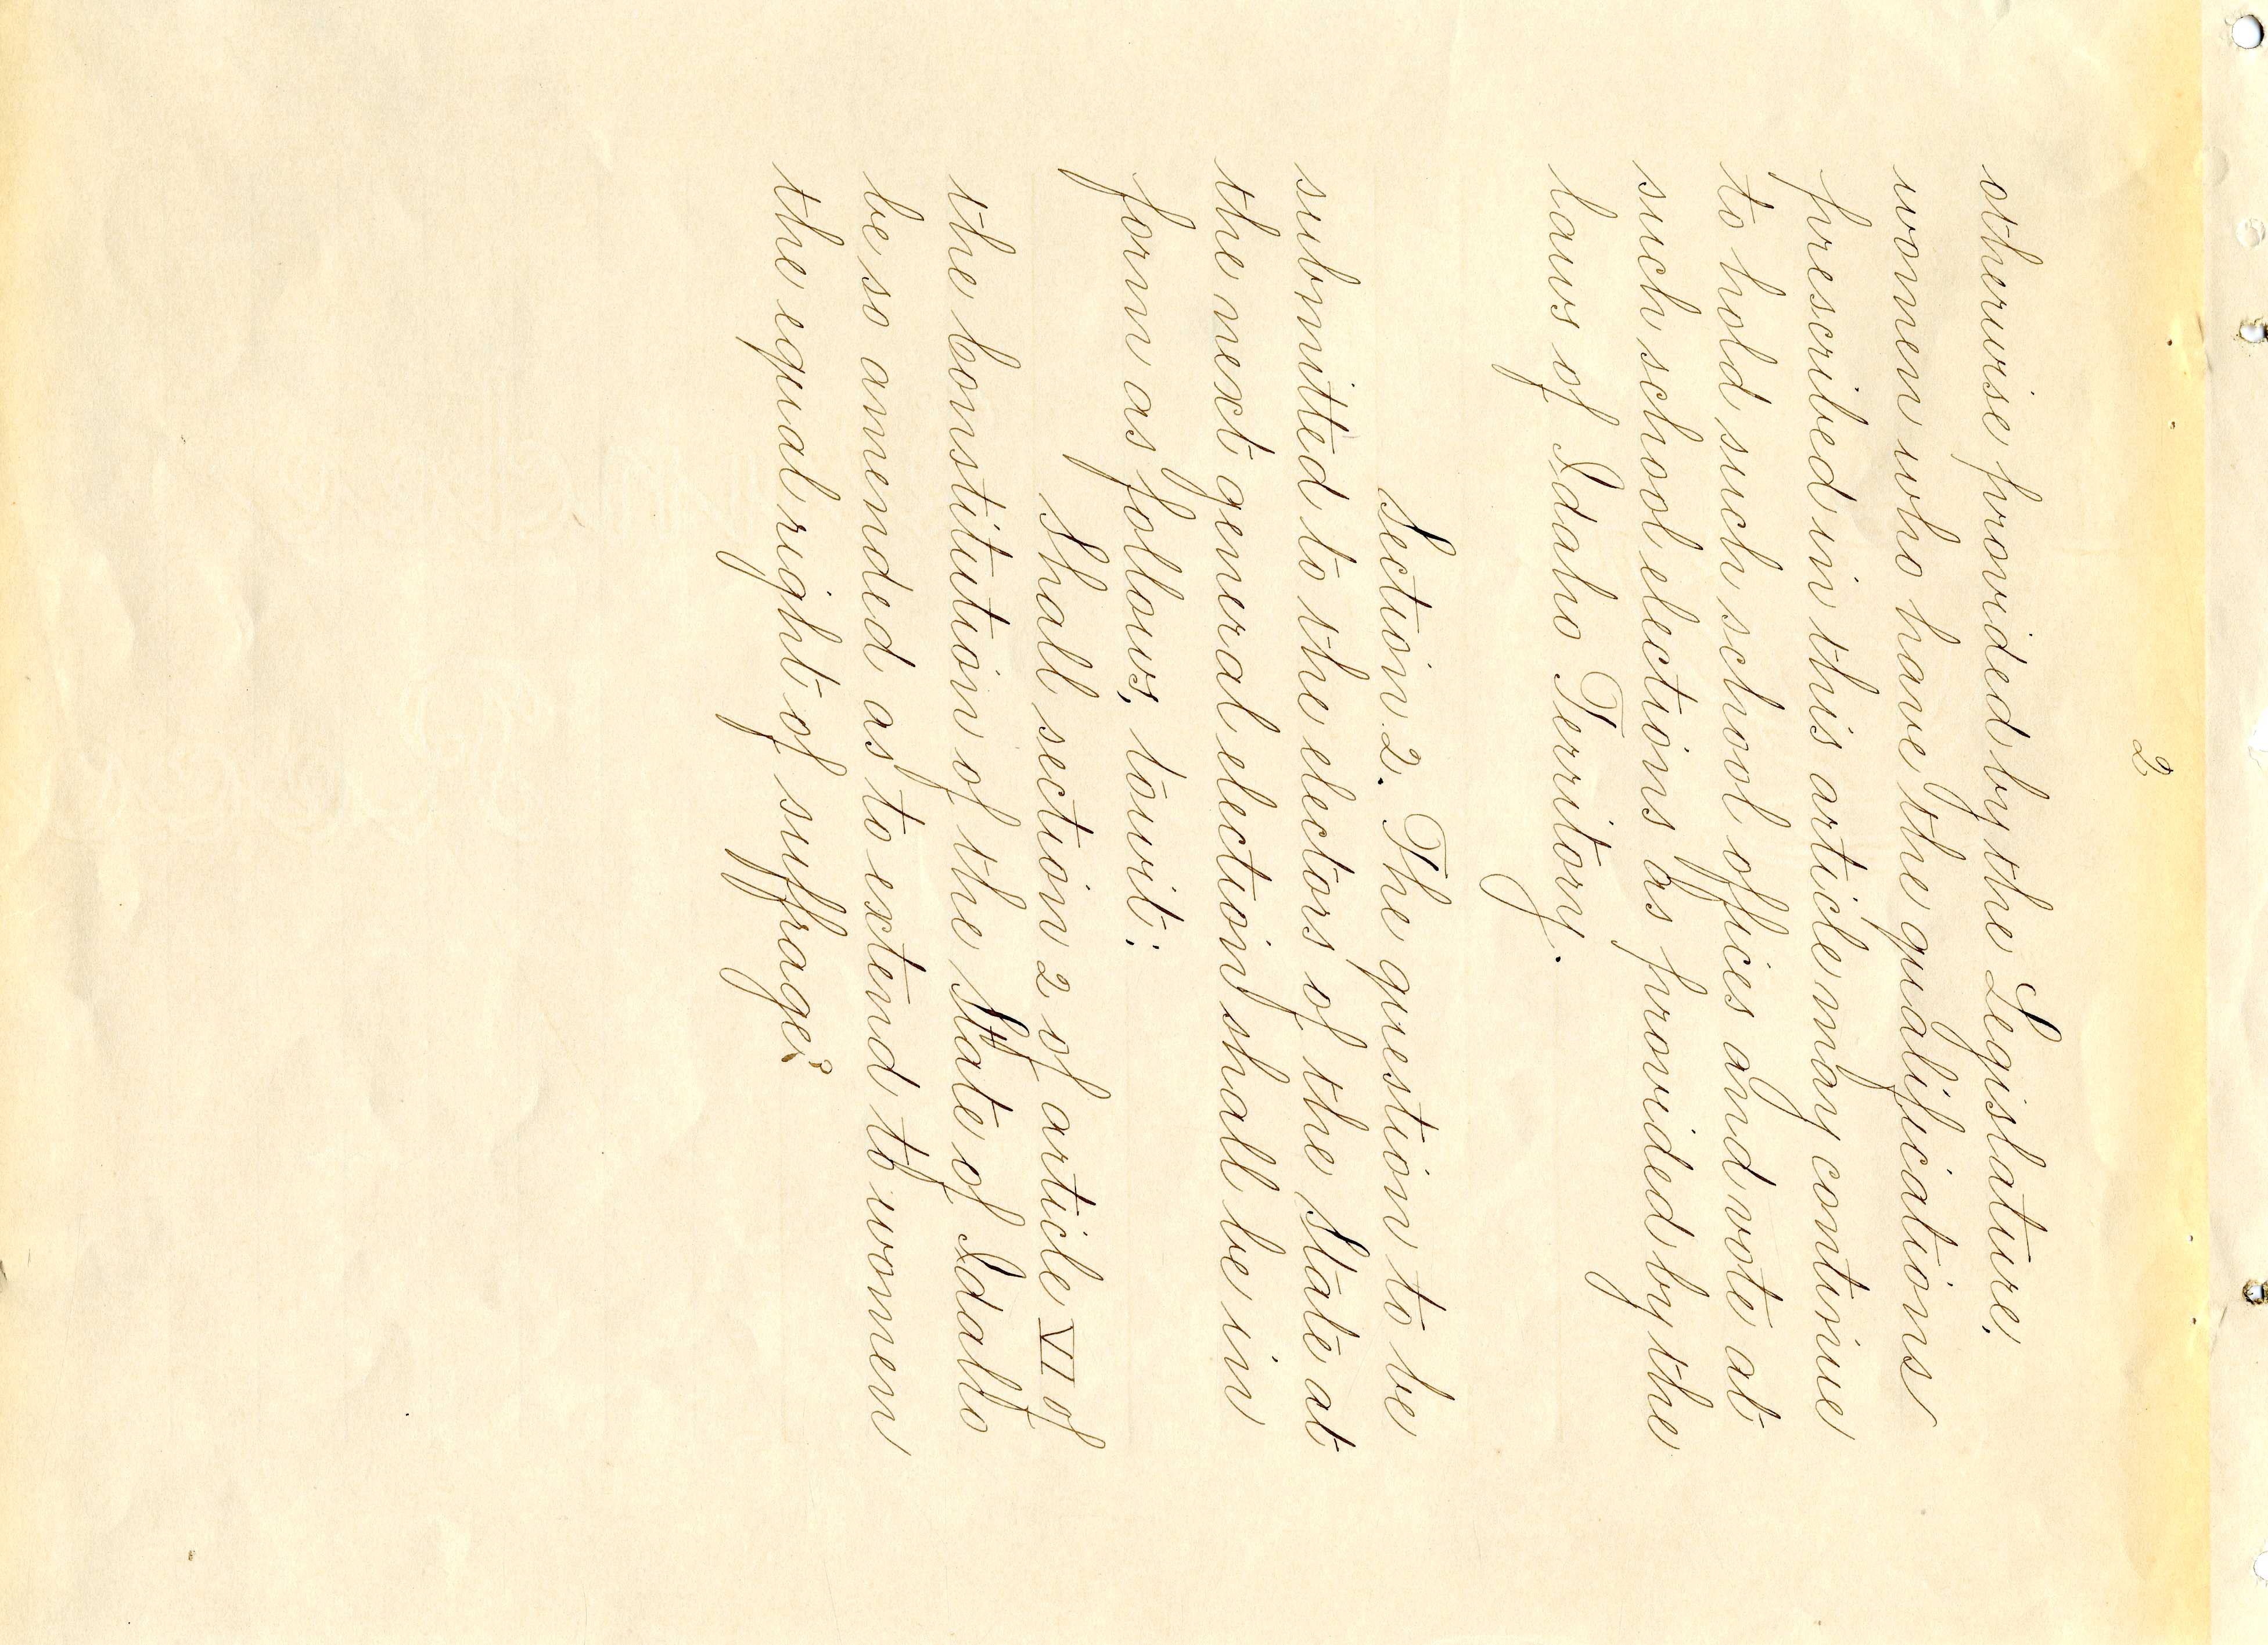 2
otherwise provided by the Legislature,
women who have the qualifications
prescribed in this article may continue
to hold such school offices and vote at
such school elections as provided by the
laws of Idaho Territory.
Section 2. The question to be
submitted to the electors of the State at
the next general election shall be in
form as follows, towit:
Shall section 2 of article VI of
the Constitution of the State of Idaho
be so amended as to extend to women
the equal right of suffrage?